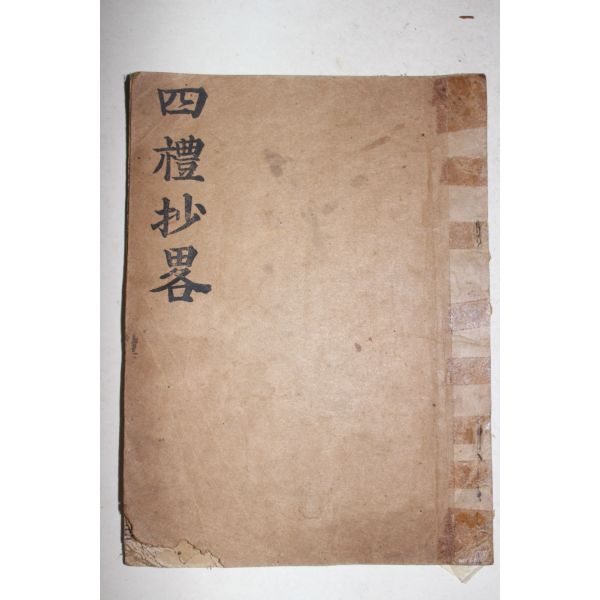 四禮抄畧